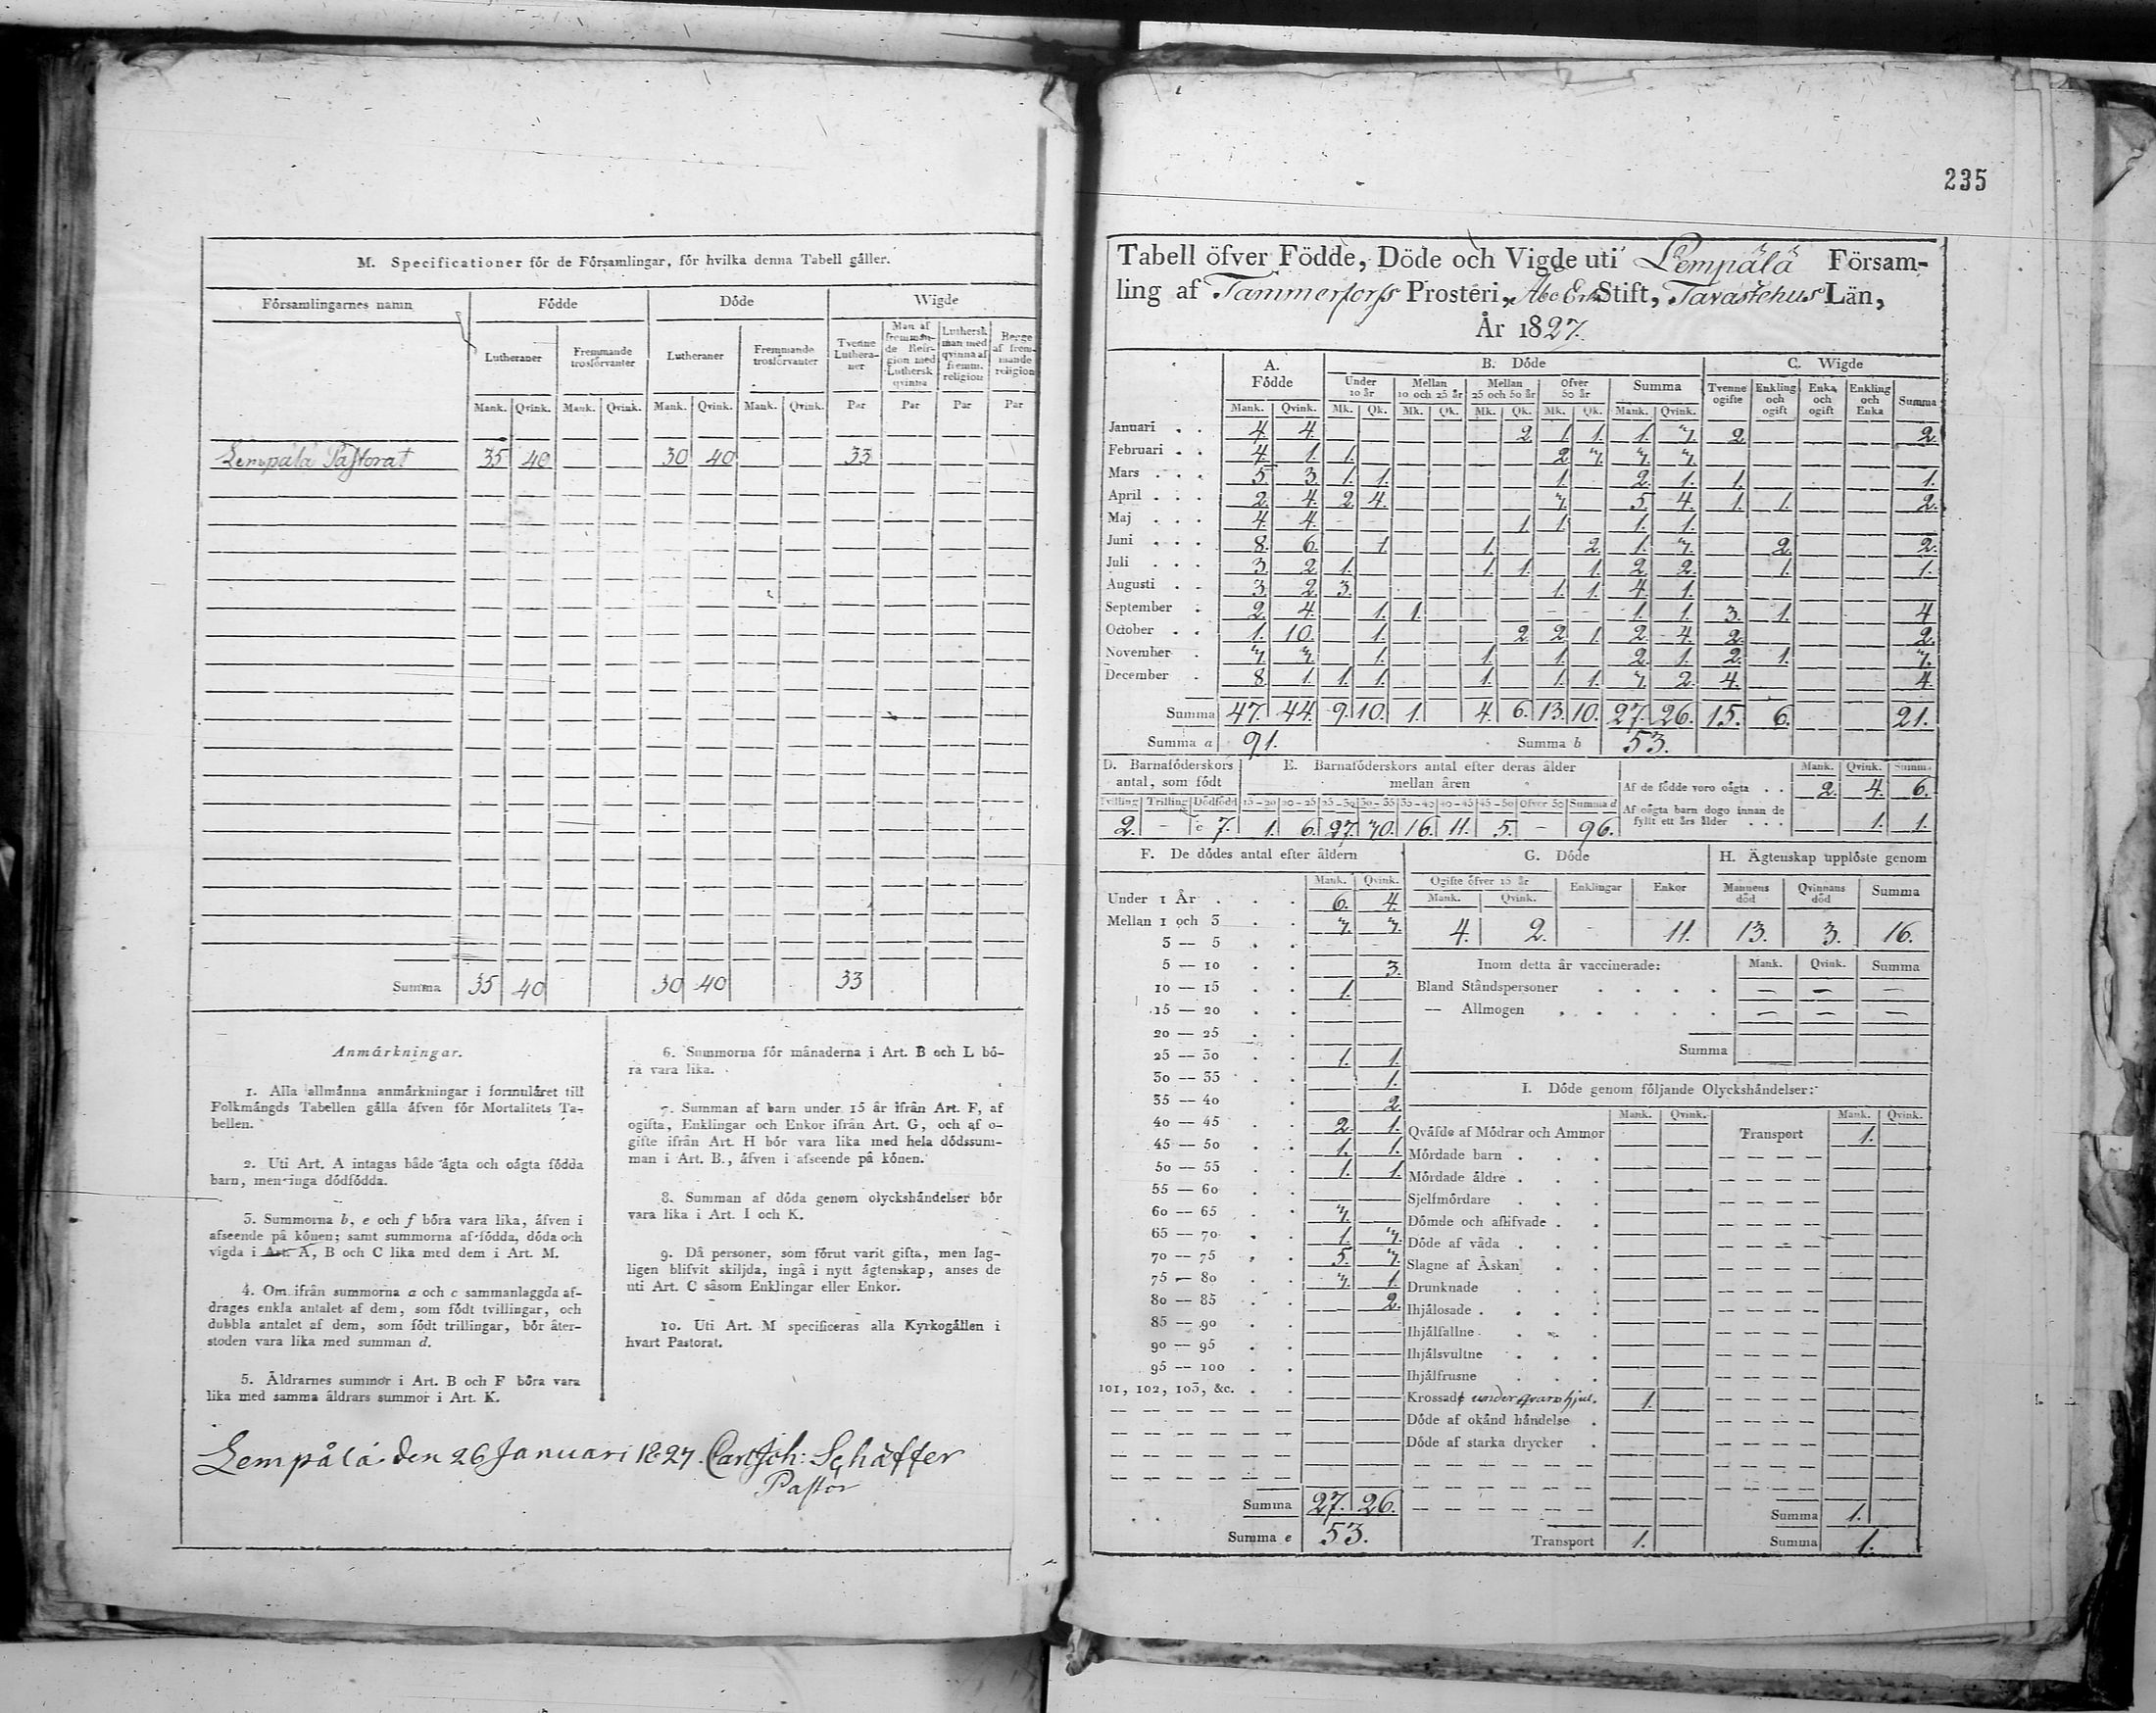 M. Specificationer för de Församlingar, för hvilka denna Tabell gäller.
Församlingarnes namn | Födde | Döde | Wigde
Lutheraner | Fremmande trosförvanter | Lutheraner | Fremmande trosförvanter | Tvenne Lutheraner | Man af fremmande Religion med Luthersk qvinna | Luthersk man med qvinna af fremm. religion | Begge af fremmande religion
Mank. | Qvink. | Mank. | Qvink. | Mank. | Qvink. | Mank. | Qvink. | Par | Par | Par | Par
Lempälä Pastorat | 35 | 40 | 30 | 40 | 33
Summa | 35 | 40 | 30 | 40 | 33
Anmärkningar.
1. Alla allmänna anmärkningar i formuläret till
Folkmängds Tabellen gälla äfven för Mortalitets Ta-
bellen.
2. Uti Art. A intagas både ägta och oägta födda
barn, men inga dödfödda.
3. Summorna b, e och f böra vara lika, äfven i
afseende på könen; samt summorna af födda, döda och
vigda i Art. A, B och C lika med dem i Art. M.
4. Om ifrån summorna a och c sammanlaggda af-
drages enkla antalet af dem, som födt tvillingar, och
dubbla antalet af dem, som födt trillingar, bör åter-
stoden vara lika med summan d.
5. Åldrarnes summor i Art. B och F böra vara
lika med samma åldrars summor i Art. K.
6. Summorna för månaderna i Art. B och L bö-
ra vara lika.
7. Summan af barn under 15 år ifrån Art. F, af
ogifta, Enklingar och Enkor ifrån Art. G, och af o-
gifte ifrån Art. H bör vara lika med hela dödssum-
man i Art. B., äfven i afseende på könen.
8. Summan af döda genom olyckshändelser bör
vara lika i Art. I och K.
9. Då personer, som förut varit gifta, men lag-
ligen blifvit skiljda, ingå i nytt ägtenskap, anses de
uti Art. C såsom Enklingar eller Enkor.
10. Uti Art. M specificeras alla Kyrkogällen i
hvart Pastorat.
Lempälä den 26 Januari 1827. Carl Joh: Schäffer
Pastor
235
Tabell öfver Födde, Döde och Vigde uti Lempälä Försam-
ling af Tammerforss Prosteri, Abo Stift, Tavastehus Län,
År 1827.
A. Födde | B. Döde | C. Wigde
Under 10 år | Mellan 10 och 25 år | Mellan 25 och 50 år | Öfver 50 år | Summa | Tvenne ogifte | Enkling och ogift | Enka och ogift | Enkling och Enka | Summa
Mank. | Qvink. | Mk. | Qk. | Mk. | Qk. | Mk. | Qk. | Mk. | Qk. | Mank. | Qvink.
Januari | 4. | 4. | 2 | 1. | 1. | 1. | 3. | 2 | 2
Februari | 4. | 1. | 1. | 2 | 3. | 3. | 3.
Mars | 5 | 3. | 1. | 1. | 1. | 2. | 1. | 1. | 1.
April | 2. | 4. | 2 | 4. | 3. | 5. | 4. | 1. | 1. | 2.
Maj | 4. | 4. | 1. | 1. | 1. | 1.
Juni | 8. | 6. | 1. | 1. | 2. | 1. | 3. | 2. | 2.
Juli | 3. | 2 | 1. | 1. | 1. | 1. | 2 | 2. | 1. | 1.
Augusti | 3. | 2. | 3. | 1. | 1. | 4. | 1.
September | 2. | 4. | 1. | 1. | 1. | 1. | 3. | 1. | 4
October | 1. | 10. | 1. | 2 | 2 | 1. | 2. | 4. | 2. | 2.
November | 3. | 3. | 1. | 1. | 1. | 2. | 1. | 2. | 1. | 3.
December | 8. | 1 | 1. | 1. | 1. | 1. | 1. | 3. | 2. | 4. | 4.
Summa | 47. | 44. | 9. | 10. | 1. | 4. | 6. | 13. | 10. | 27. | 26. | 15. | 6. | 21.
Summa a | 91. | Summa b | 53.
D. Barnaföderskors antal, som födt
Tvilling | Trilling | Dödfödd
2. | - | c 7.
E. Barnaföderskors antal efter deras ålder mellan åren
15-20 | 20-25 | 25-30 | 30-35 | 35-40 | 40-45 | 45-50 | Öfver 50 | Summa d
1. | 6. | 27. | 30. | 16. | 11. | 5. | - | 96.
Mank. | Qvink. | Summ.
Af de födde voro oägta | 2. | 4. | 6.
Af oägta barn dogo innan de fyllt ett års ålder | 1. | 1.
F. De dödes antal efter åldern
Mank. | Qvink.
Under 1 År | 6. | 4.
Mellan 1 och 3 | 3. | 3.
3 — 5
5 — 10 | 3.
10 — 15 | 1.
15 — 20
20 — 25
25 — 30 | 1. | 1.
30 — 35 | 1.
35 — 40 | 2
40 — 45 | 2. | 1.
45 — 50 | 1. | 1.
50 — 55 | 1. | 1.
55 — 60
60 — 65 | 3.
65 — 70 | 1. | 3.
70 — 75 | 5. | 3.
75 — 80 | 3. | 1.
80 — 85 | 2.
85 — 90
90 — 95
95 — 100
101, 102, 103, &c.
Summa | 27. | 26.
Summa e | 53.
G. Döde
Ogifte öfver 15 år | Enklingar | Enkor
Mank. | Qvink.
4. | 2. | - | 11.
H. Ägtenskap upplöste genom
Mannens död | Qvinnans död | Summa
13. | 3. | 16.
Inom detta år vaccinerade: | Mank. | Qvink. | Summa
Bland Ståndspersoner | — | — | —
— Allmogen | — | — | —
Summa
I. Döde genom följande Olyckshändelser:
Mank. | Qvink. | Mank. | Qvink.
Qväfde af Mödrar och Ammor | Transport | 1.
Mördade barn
Mördade äldre
Sjelfmördare
Dömde och aflifvade
Döde af våda
Slagne af Åskan
Drunknade
Ihjälosade
Ihjälfallne
Ihjälsvultne
Ihjälfrusne
Krossadt under qvarnhjul. | 1.
Döde af okänd händelse
Döde af starka drycker
Summa | 1.
Transport | 1. | Summa | 1.